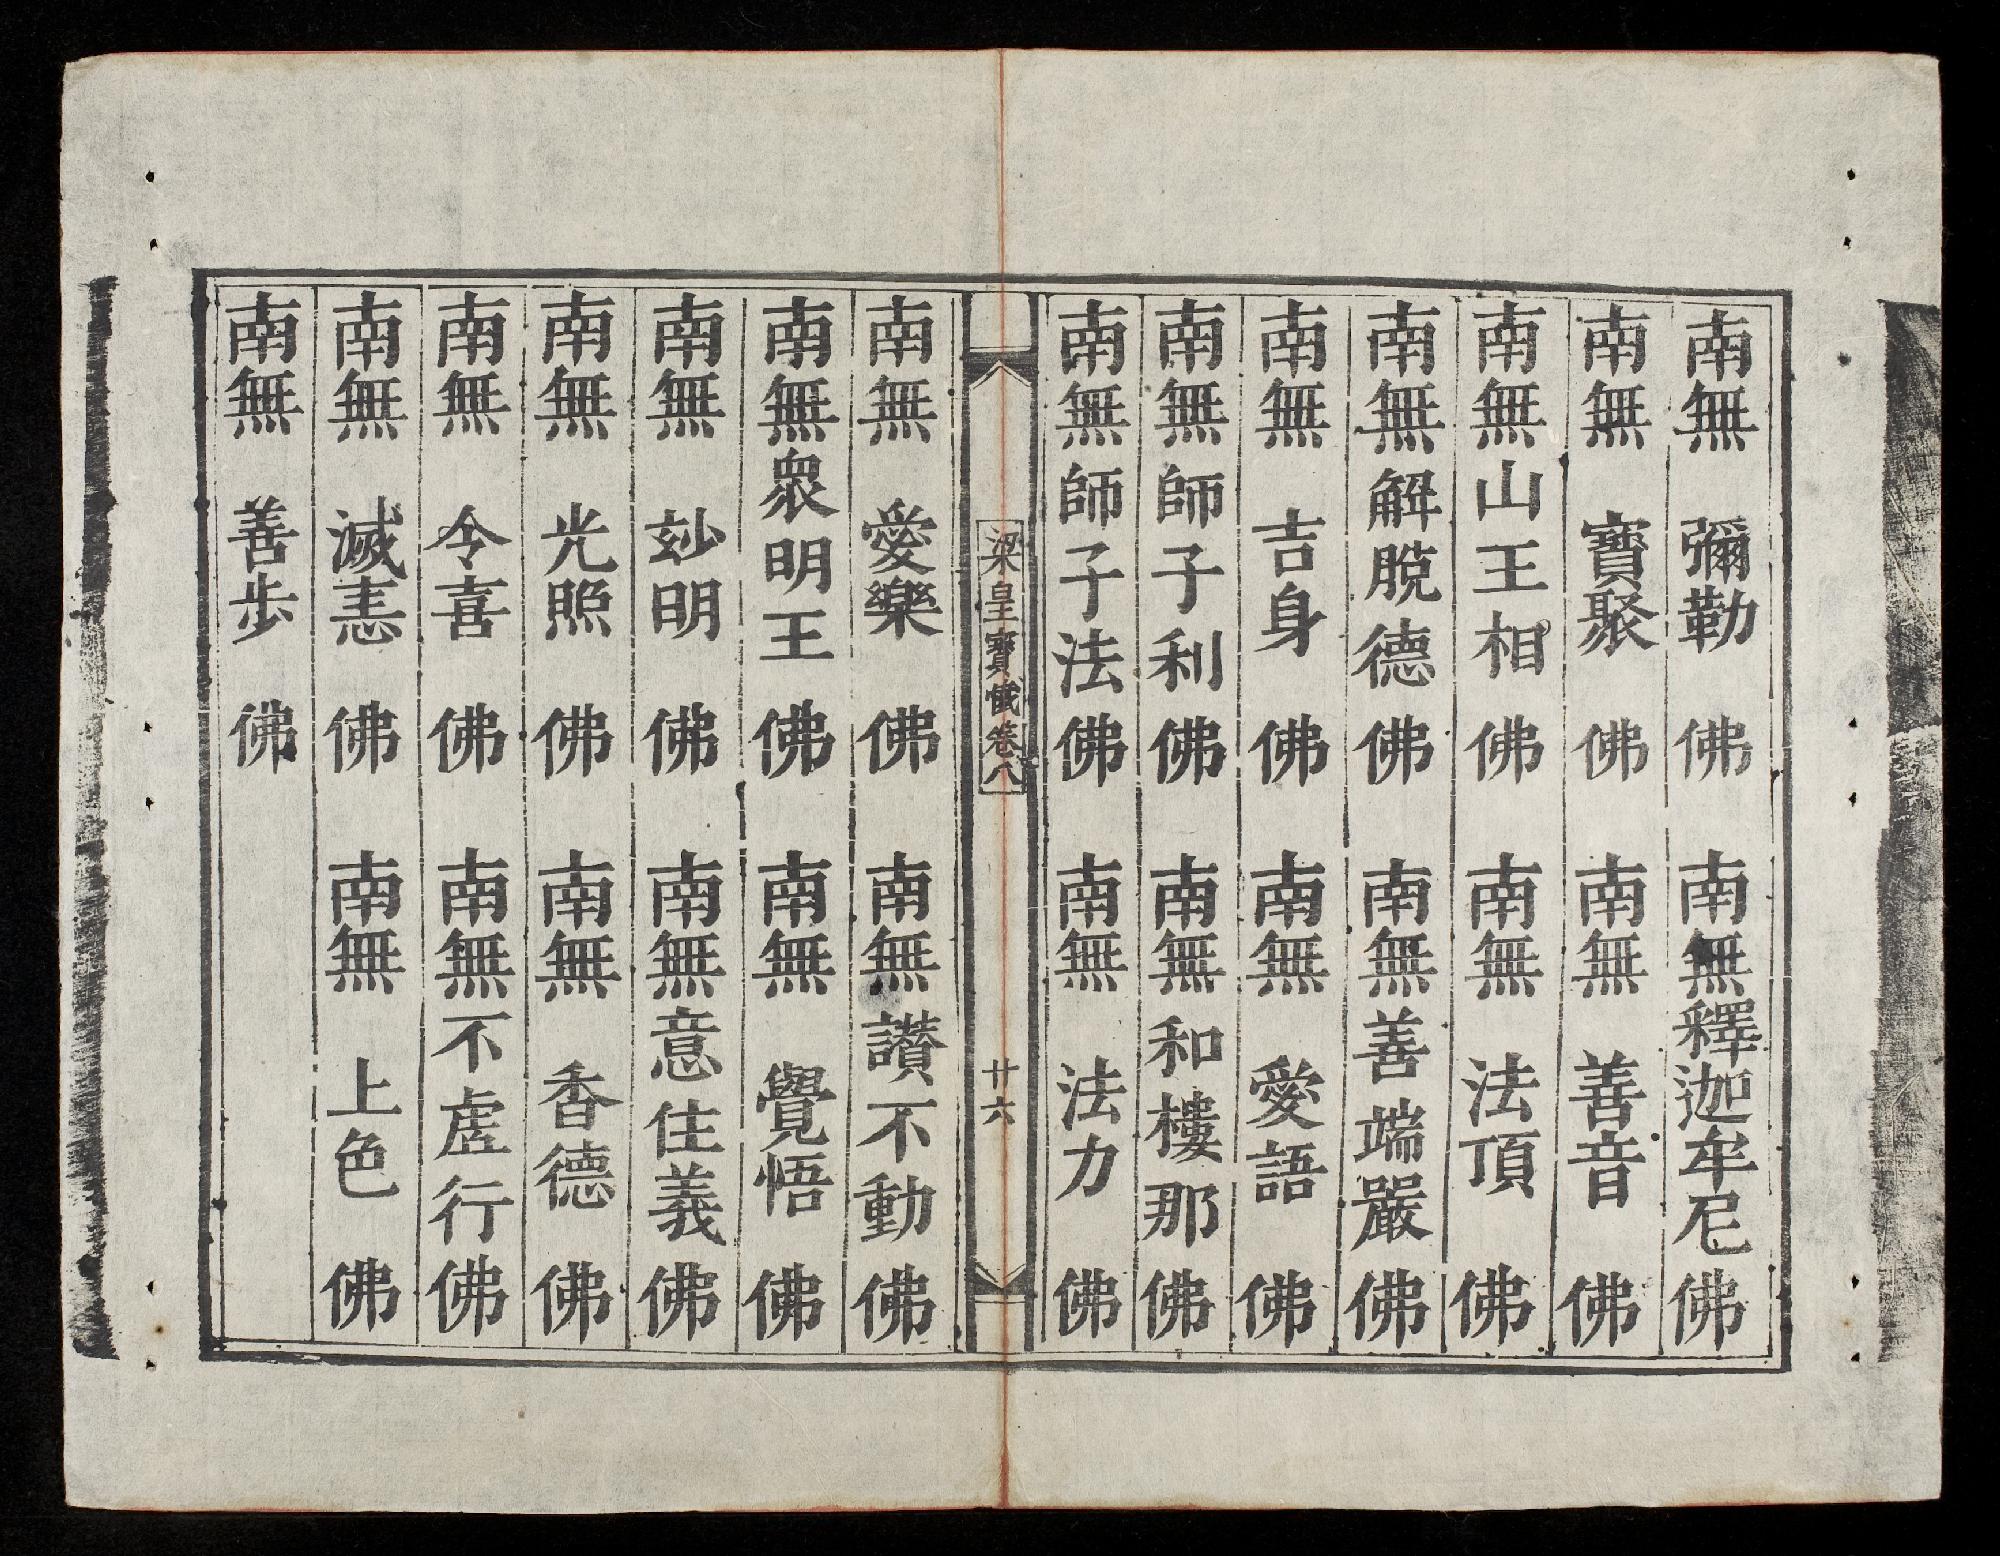 南無彌勒佛南無釋迦牟尼佛
南無寶聚佛南無善音佛
南無山王相佛南無法頂佛
南無解脫德佛南無善端嚴佛
南無吉身佛南無愛語佛
南無師子利佛南無和樓那佛
南無師子法佛南無法力佛
梁皇寶懺卷八
廿六
南無愛樂佛南無讃不動佛
南無衆明王佛南無覺悟佛
南無妙明佛南無意住義佛
南無光照佛南無香德佛
南無令喜佛南無不虛行佛
南無滅恚佛南無上色佛
南無善步佛